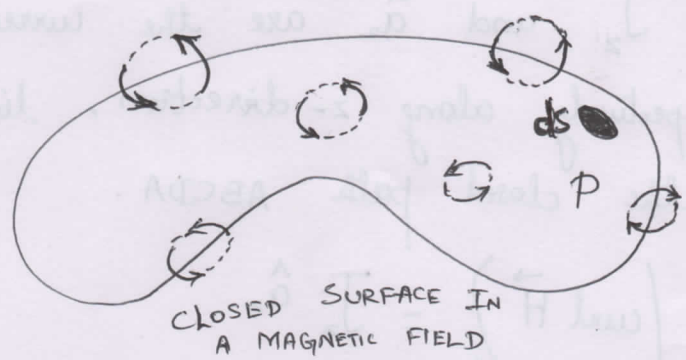 ds
P
CLOSED SURFACE IN
A MAGNETIC FIELD